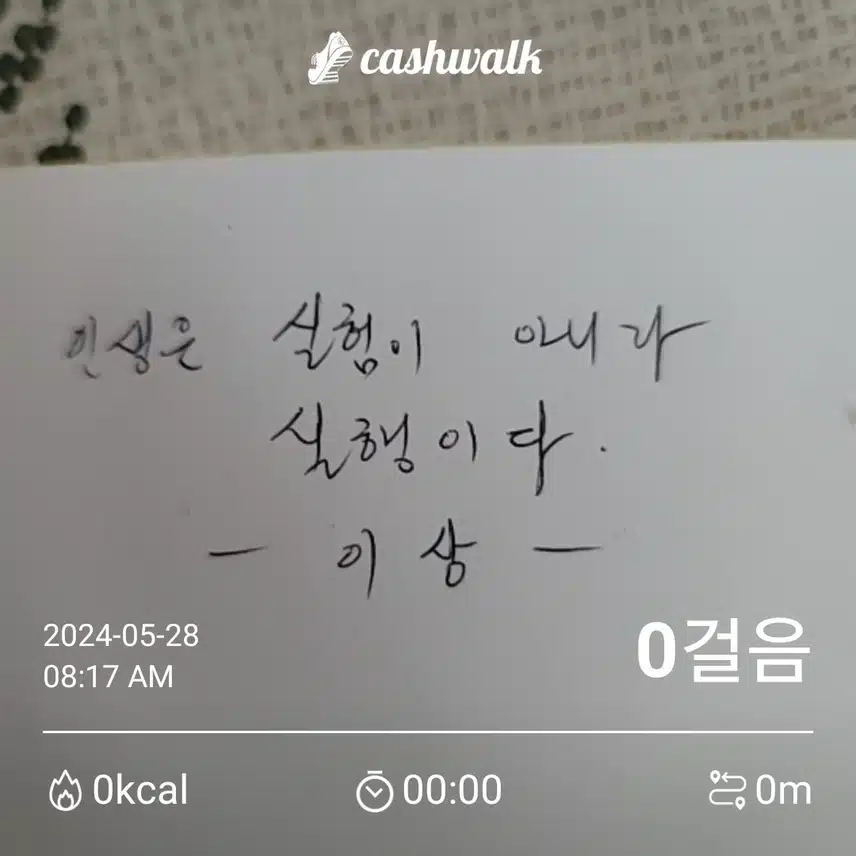 cashwalk
인생은 실험이 아니라
실행이다.
- 이상 -
2024-05-28
08:17 AM
0걸음
0kcal
00:00
0m